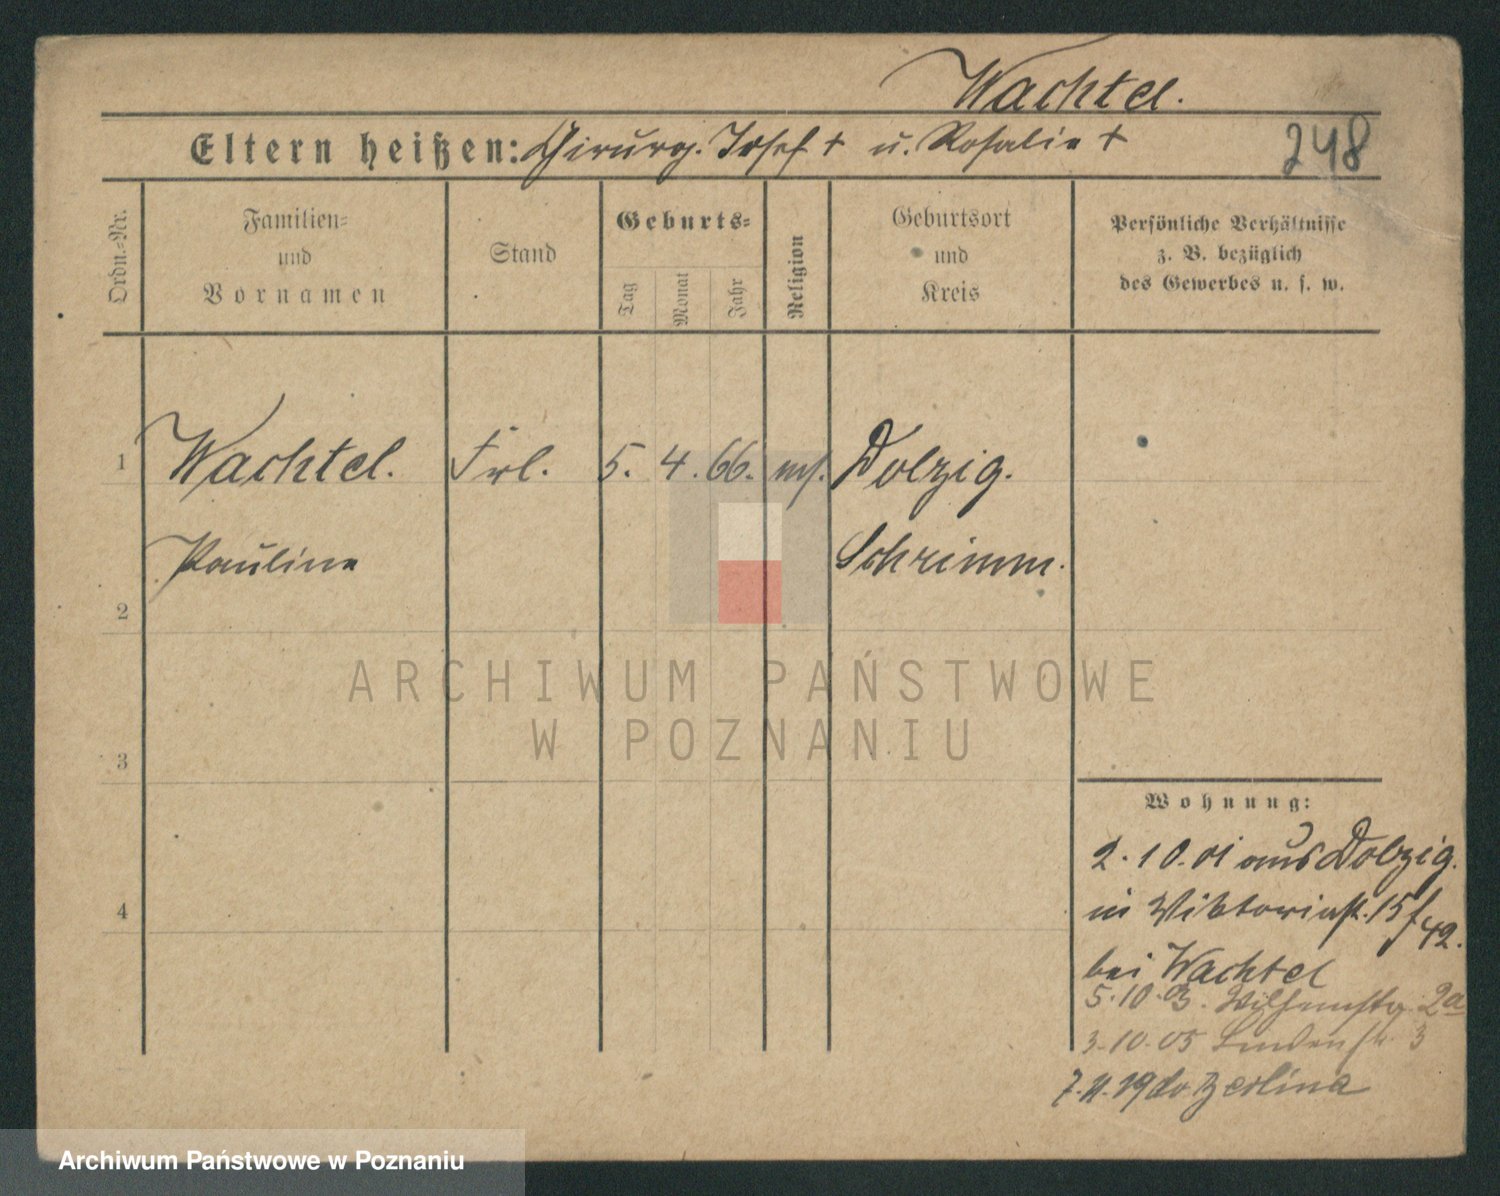 Wachtel.
Eltern heißen: Chirurg. Josef + u. Rosalie +
248
Ordn.-Nr.
Familien-
und
Vornamen
Stand
Geburts-
Tag
Monat
Jahr
Religion
Geburtsort
und
Kreis
Persönliche Verhältnisse
z. B. bezüglich
des Gewerbes u. s. w.
1
Wachtel.
Frl.
5.
4.
66.
Dolzig.
Pauline
Schrimm.
2
ARCHIWUM PAŃSTWOWE
W POZNANIU
3
4
Wohnung:
2.10.01 aus Dolzig.
in Viktoriastr. 15
42.
bei Wachtel
5.10.03. 2a
3.10.05 Lindenstr. 3
do Berlina
Archiwum Państwowe w Poznaniu